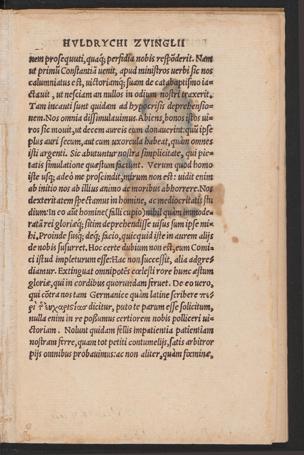 HVLDRYCHI ZVINGLII
nem prosequuti, quaq; perfidia nobis respōderit. Nam
ut primū Constantiā uenit, apud ministros uerbi sic nos
calumniatus est, uictoriamq; suam de catabaptismo ia-
ctauit, ut nesciam an nullos in odium nostri traxerit.
Tam incauti sunt quidam ad hypocrisis deprehensio-
nem. Nos omnia dissimulauimus. Abiens, bonos istos ui-
ros sic mouit, ut decem aureis eum donauerint: quū ipse
plus auri secum, aut cum uxorcula habeat, quàm omnes
isti argenti. Sic abutuntur nostra simplicitate, qui pie-
tatis simulatione quæstum faciunt. Verum quòd homo
iste usq; adeò me proscindit, mirum non est: uidit enim
ab initio nos ab illius animo ac moribus abhorrere. Nos
dexteritatem spectamus in homine, ac mediocritatis stu
dium: In eo aūt homine (falli cupio) nihil quàm immode-
ratā rei gloriæq; sitim deprehendisse uisus sum ipse mi-
hi. Proinde susq; deq; facio, quicquid iste in aurem alijs
de nobis susurret. Hoc certe dubium non est, eum Comi-
ci istud impleturum esse: Hac non successit, alia aggre-
diamur. Extinguat omnipotēs cælesti rore hunc æstum
gloriæ, qui in cordibus quorundam feruet. De eo uero,
qui cōtra nos tam Germanice quàm latine scribere πε-
ρὶ εὐχαριστίας dicitur, puto te parum esse solicitum,
nulla enim in re possumus certiorem nobis polliceri ui-
ctoriam. Nolunt quidam fellis impatientia patientiam
nostram ferre, quam tot petiti contumelijs, satis arbitror
pijs omnibus probauimus: ac non aliter, quàm fœmina,